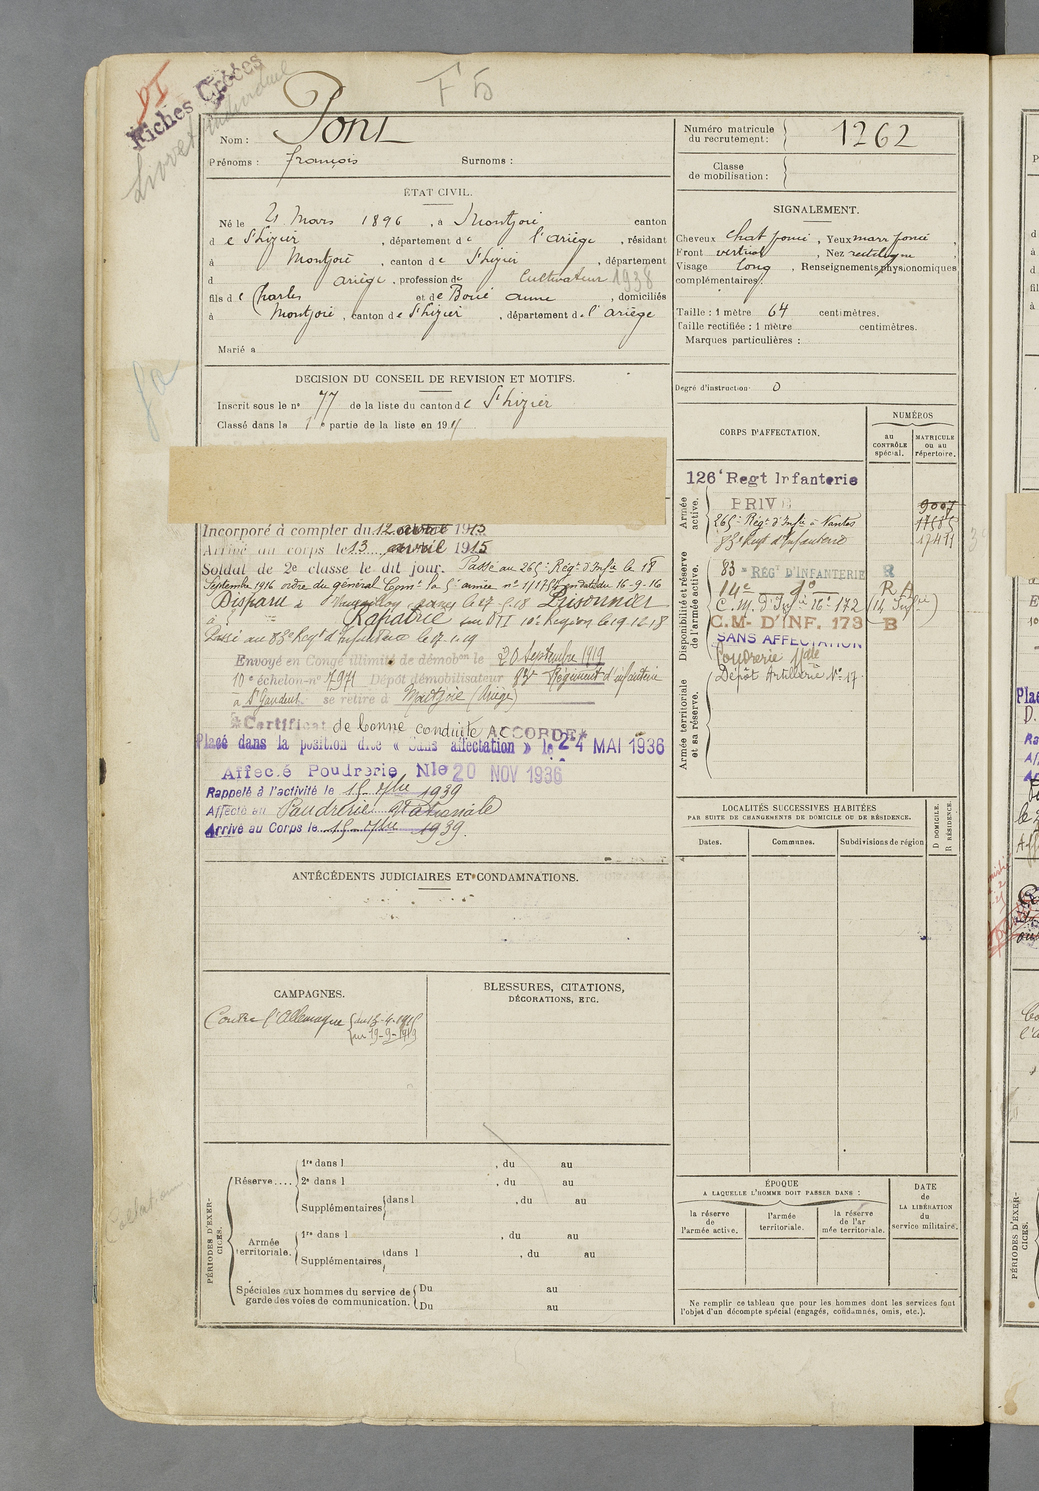 Fiches Créées
Livret individuel
F 5
Nom : Pons
Prénoms : françois Surnoms :
Numéro matricule du recrutement : 1262
Classe de mobilisation :
ÉTAT CIVIL.
Né le 21 Mars 1896, à Montjoie canton
de St Lizier, département de l'ariège, résidant
à Montjoie, canton de St Lizier, département
d ariège, profession de Cultivateur 1938
fils de Charles et de Boué anne, domiciliés
à Montjoie, canton de St Lizier, département de l'ariège
Marié à
SIGNALEMENT.
Cheveux chat foncé, Yeux marr foncé,
Front vertical, Nez rectiligne,
Visage long, Renseignements physionomiques
complémentaires :
Taille : 1 mètre 64 centimètres.
Taille rectifiée : 1 mètre centimètres.
Marques particulières :
Degré d'instruction 0
DECISION DU CONSEIL DE REVISION ET MOTIFS.
Inscrit sous le n° 77 de la liste du canton de St Lizier
Classé dans la 1e partie de la liste en 1915
Incorporé à compter du 12 avril 1915
Arrivé au corps le 13 avril 1915
Soldat de 2e classe le dit jour. Passé au 265e Régt d'Infie le 18
Septembre 1916 ordre du général Comt la 5e armée n° en date du 16-9-16
Disparu à le 27-5-18 Prisonnier
à Rapatrié 10e Region le 19.12.18
Passé au 83e Regt d'Infanterie le 17.1.19
Envoyé en Congé illimité de démobon le 20 Septembre 1919
10e échelon-n° 7971 Dépôt démobilisateur 83e Régiment d'infanterie
à St Gaudens se retire à Montjoie (Ariège)
Certificat de bonne conduite ACCORDÉ
Placé dans la position dite « Sans affectation » le 24 MAI 1936
Affecté Poudrerie Nle 20 NOV 1936
Rappelé à l'activité le 15 7bre 1939
Affecté au Poudrerie Nationale
Arrivé au Corps le 15 7bre 1939.
CORPS D'AFFECTATION.
NUMÉROS
au CONTRÔLE spécial.
MATRICULE ou au répertoire.
Armée active.
126e Regt Infanterie
9007
265e Régt d'Infie à Nantes 17585
83e Regt d'Infanterie 17411
Disponibilité et réserve de l'armée active.
83e REGt D'INFANTERIE R
C.M. d'Infie 16e 172
C.M- D'INF. 173 B
SANS AFFECTATION
Poudrerie Nale
Dépôt Artillerie N° 17
Armée territoriale et sa réserve.
LOCALITÉS SUCCESSIVES HABITÉES
PAR SUITE DE CHANGEMENTS DE DOMICILE OU DE RÉSIDENCE.
Dates. Communes. Subdivisions de région
D DOMICILE. R RÉSIDENCE.
ANTÉCÉDENTS JUDICIAIRES ET CONDAMNATIONS.
CAMPAGNES.
Contre l'Allemagne du 13-4-1915
au 19-9-1919
BLESSURES, CITATIONS,
DÉCORATIONS, ETC.
PÉRIODES D'EXERCICES.
Réserve....
1re dans l , du au
2e dans l , du au
Supplémentaires dans l , du au
Armée territoriale.
1re dans l , du au
Supplémentaires dans l , du au
Spéciales aux hommes du service de garde des voies de communication.
Du au
Du au
ÉPOQUE
A LAQUELLE L'HOMME DOIT PASSER DANS :
la réserve de l'armée active.
l'armée territoriale.
la réserve de l'armée territoriale.
DATE de LA LIBÉRATION du service militaire.
Ne remplir ce tableau que pour les hommes dont les services font
l'objet d'un décompte spécial (engagés, condamnés, omis, etc.).